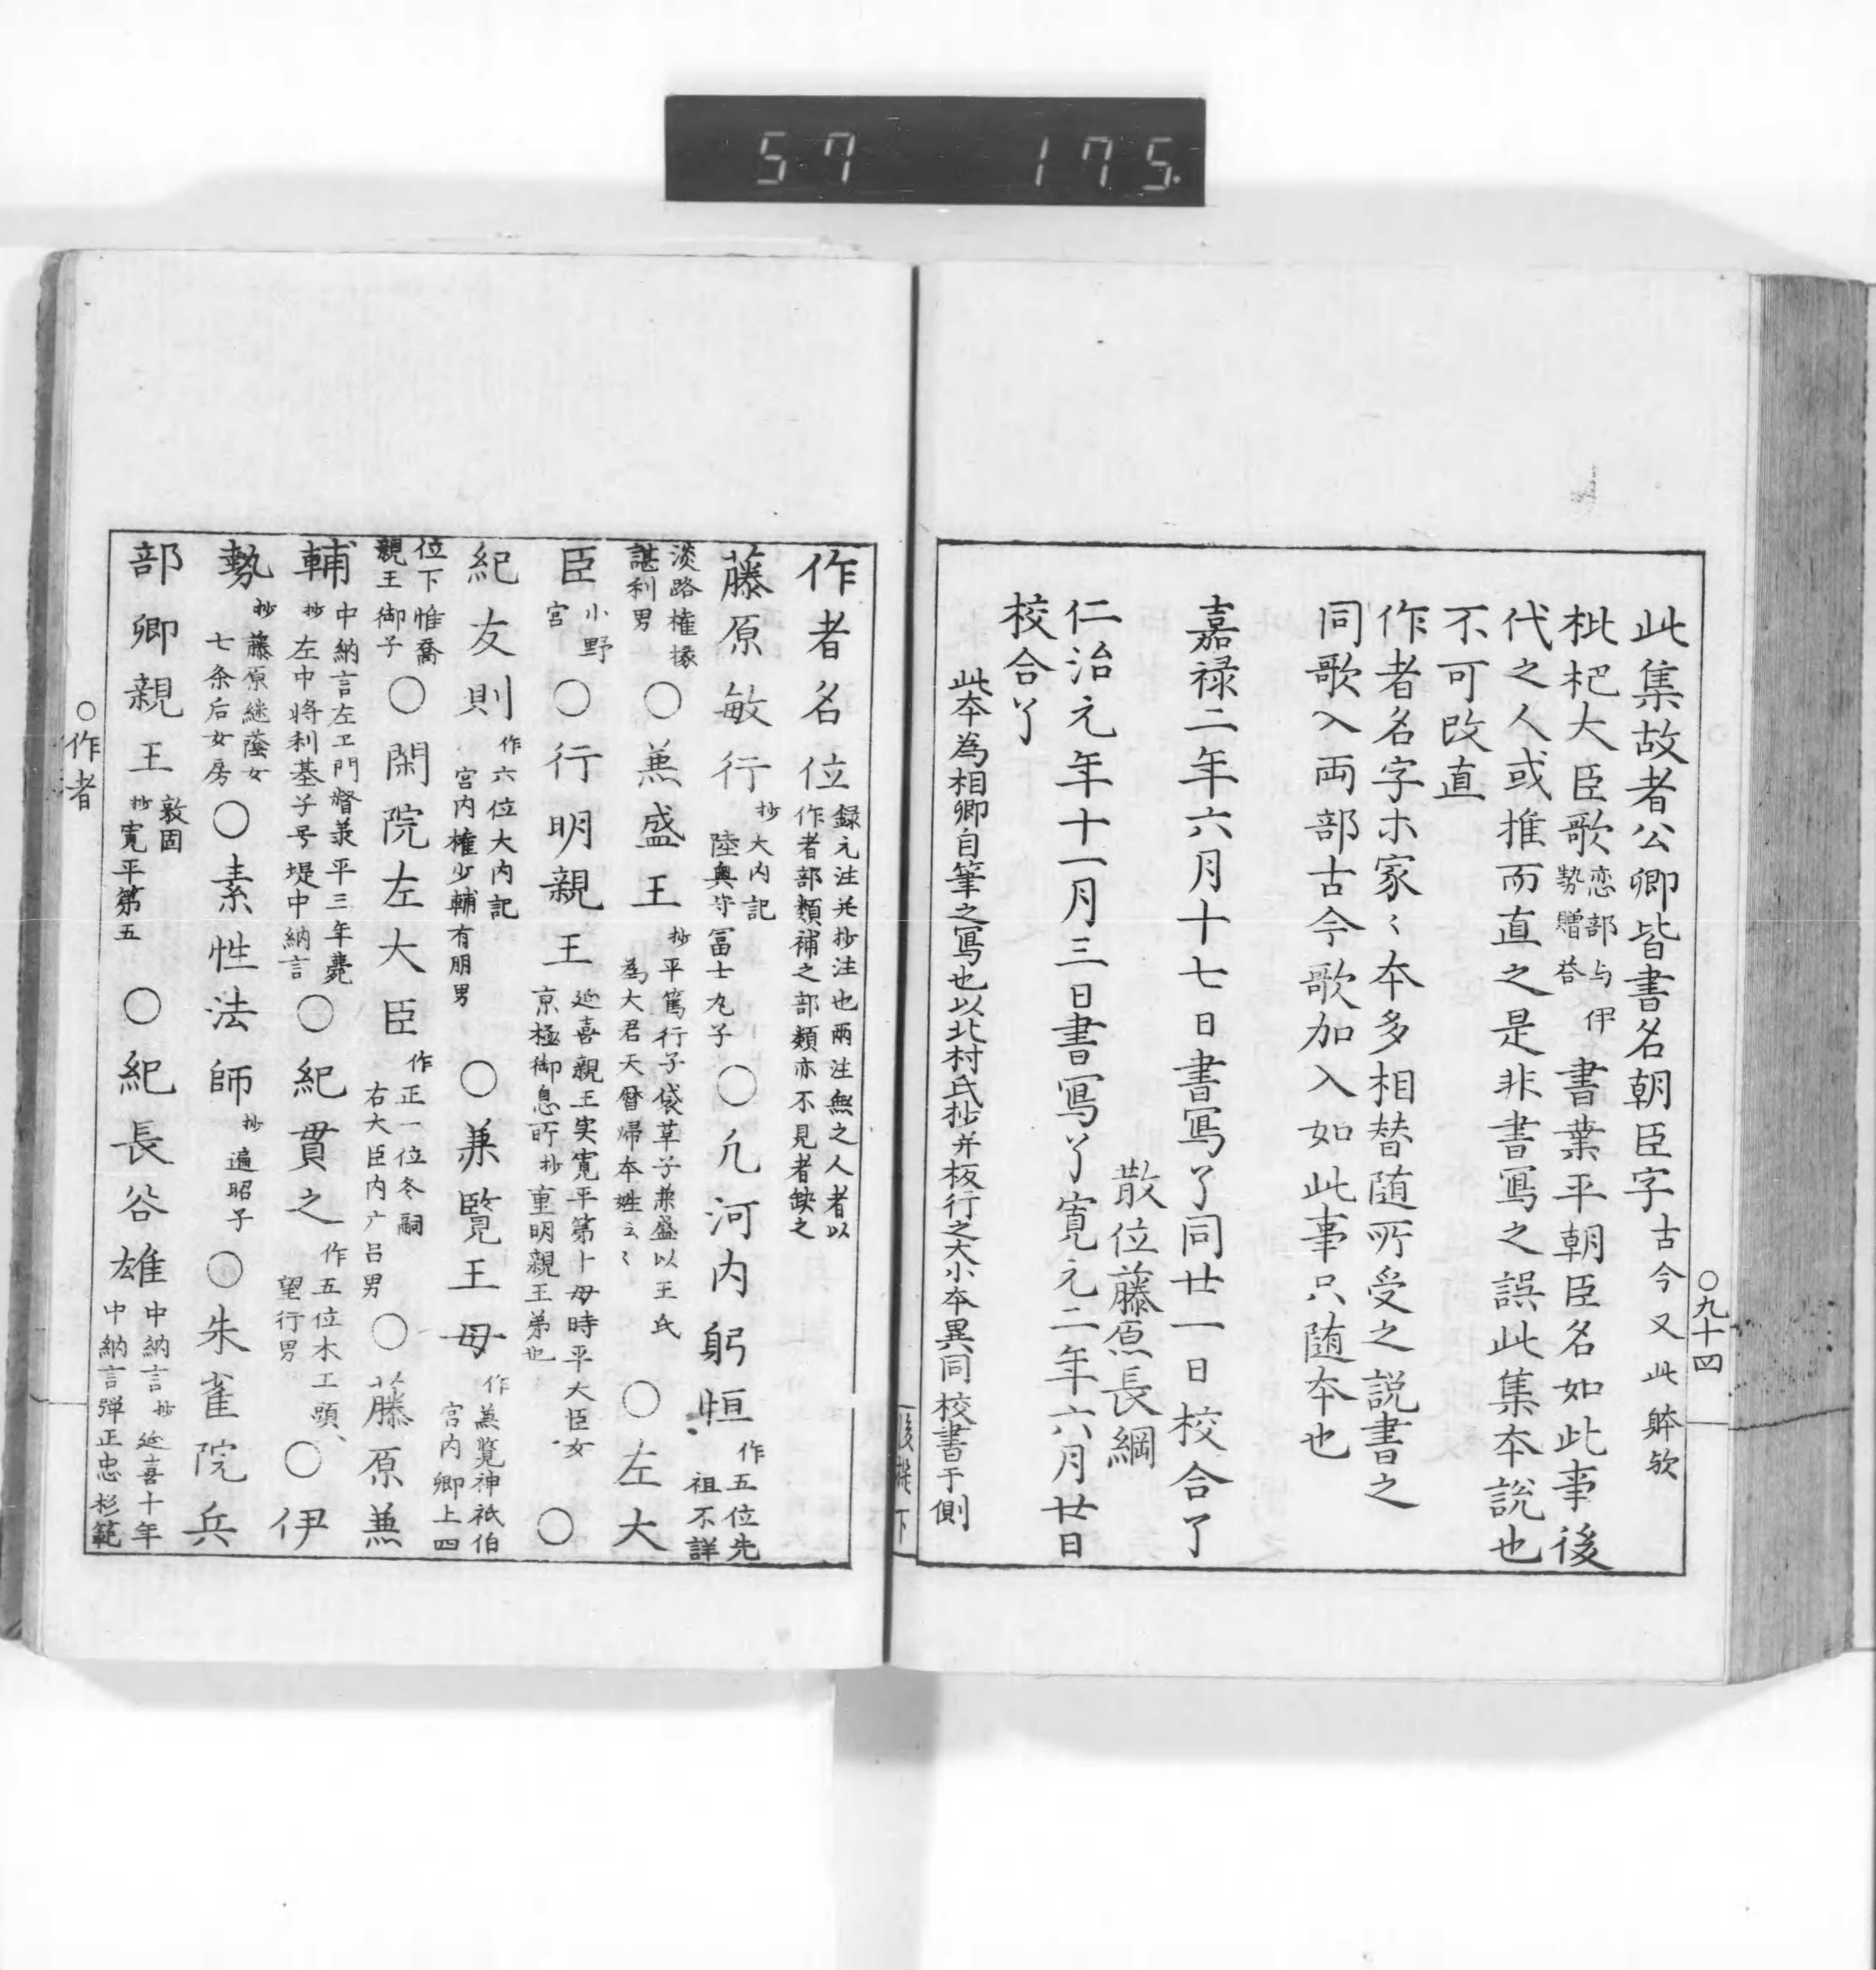 57 175.
○九十四
此集故者公卿皆書名朝臣字古今又此躰欤
枇杷大臣歌恋部与伊勢贈答書業平朝臣名如此事後
代之人或推而直之是非書写之誤此集本説也
不可改直
作者名字ホ家〻本多相替随所受之説書之
同歌入両部古今歌加入如此事只随本也
嘉禄二年六月十七日書写了同廿一日校合了
散位藤原長綱
仁治元年十一月三日書写了寛元二年六月廿日
校合了
此本為相卿自筆之写也以北村氏抄并板行之大小本異同校書于側
後撰下
作者名位録元注并抄注也兩注無之人者以作者部類補之部類亦不見者缺之
藤原敏行抄大内記陸奥守冨士丸子○凢河内躬恒作五位先祖不詳
淡路権掾諶利男○兼盛王抄平篤行子袋草子兼盛以王氏為大君天暦帰本姓云〻○左大
臣小野宮○行明親王延喜親王实寛平第十母時平大臣女京極御息所抄重明親王弟也○
紀友則作六位大内記宮内権少輔有朋男○兼覧王母作兼覧神祇伯宮内卿上四
位下惟喬親王御子○閑院左大臣作正一位冬嗣右大臣内广吕男○藤原兼
輔中納言左卫門督兼平三年薨抄左中将利基子号堤中納言○紀貫之作五位木工頭、望行男○伊
勢抄藤原継蔭女七条后女房○素性法師抄遍昭子○朱雀院兵
部卿親王敦固抄寛平第五○紀長谷雄中納言抄延喜十年中納言弾正忠杉範
○作者